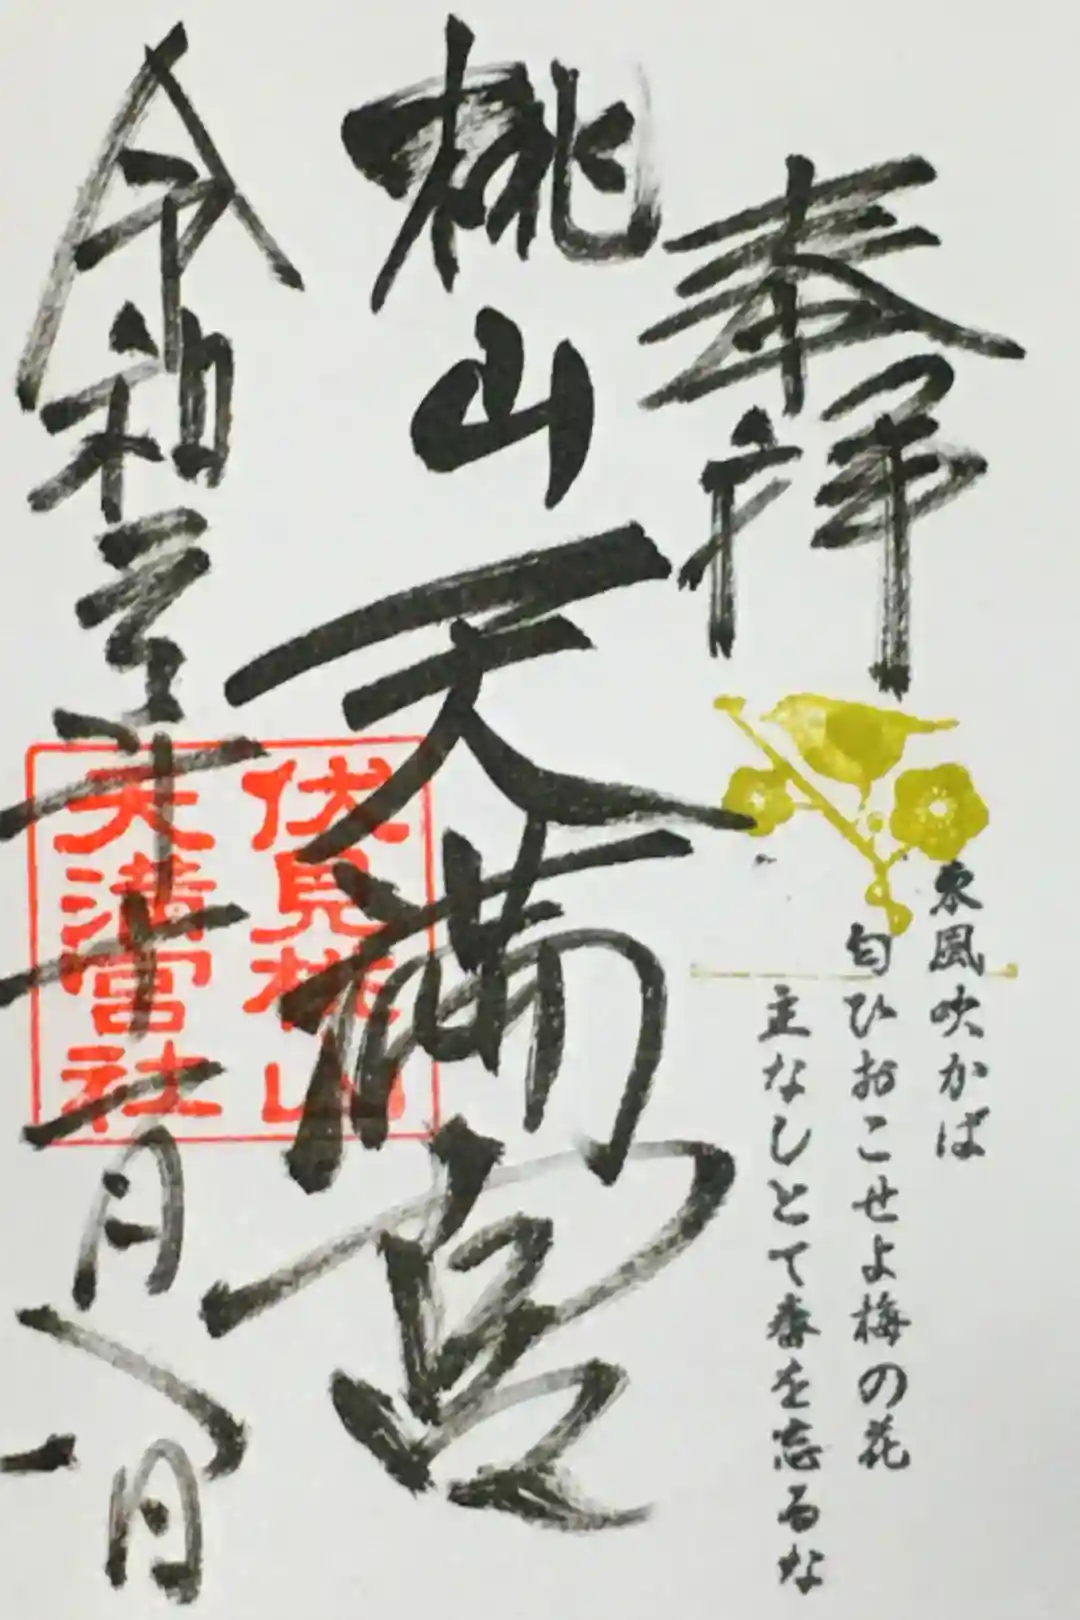 奉拝
東風吹かば
匂ひおこせよ梅の花
主なしとて春を忘るな
桃山天満宮
伏見桃山
天満宮社
令和